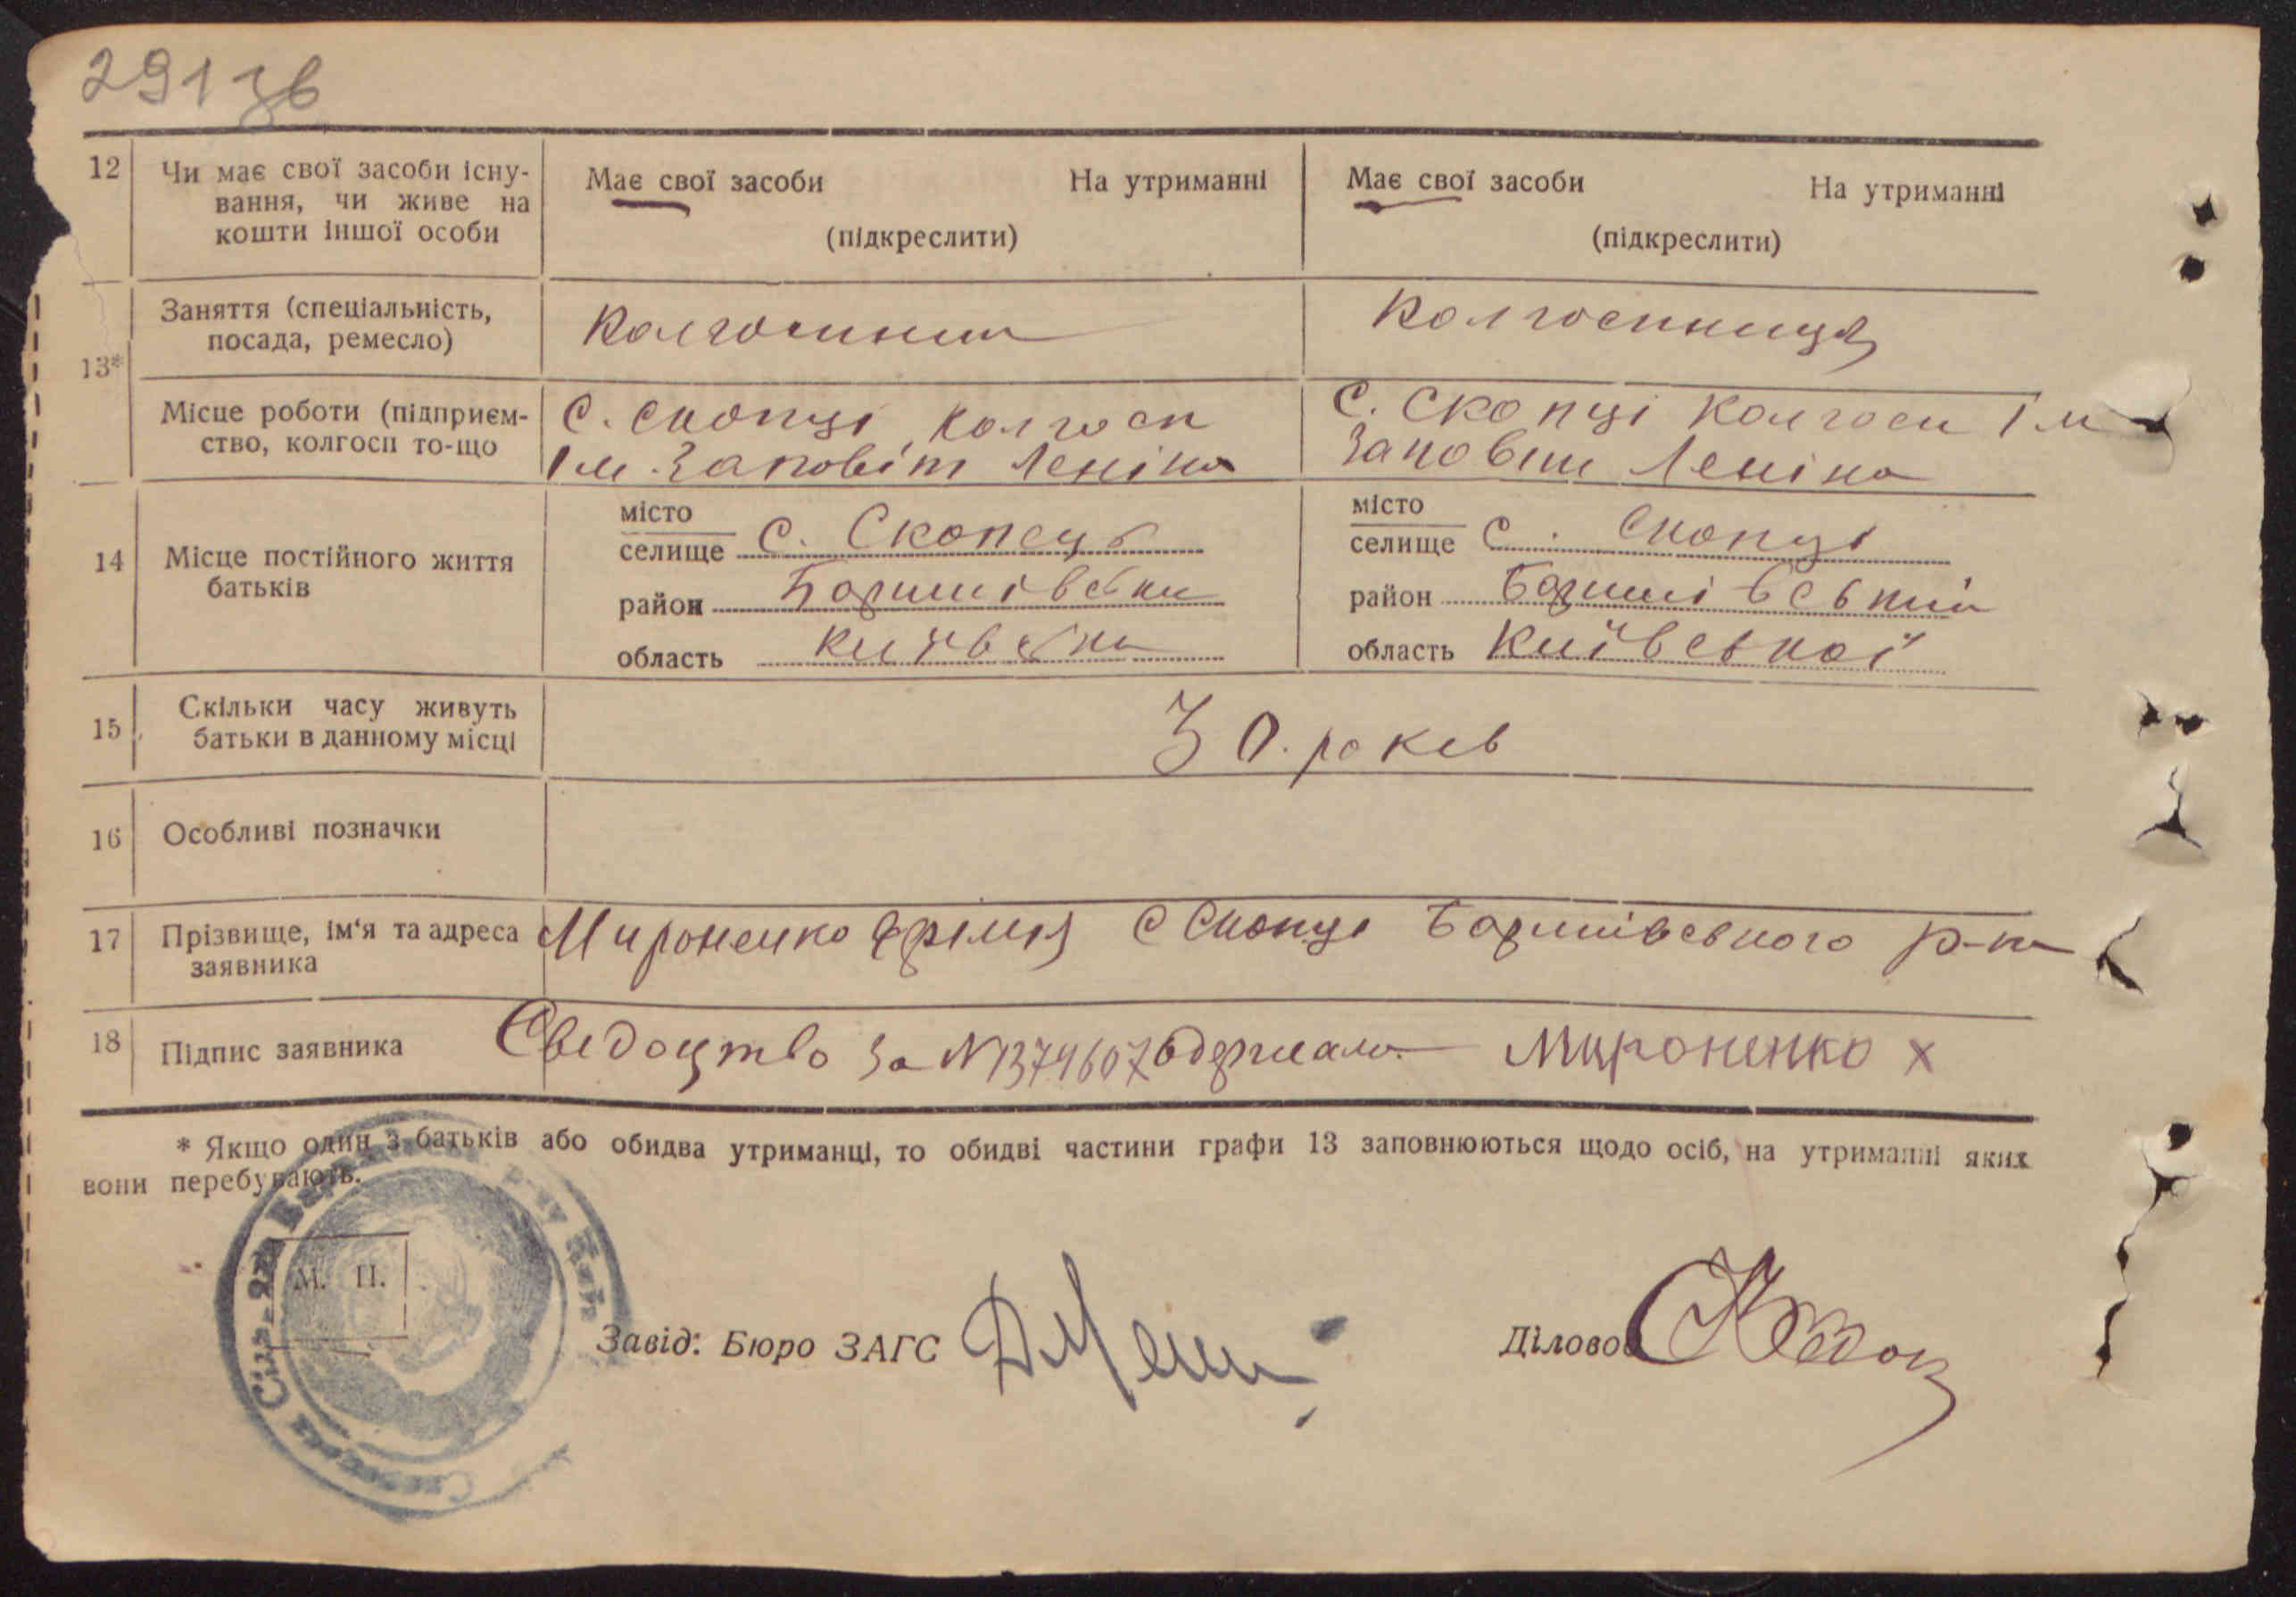 291 зв
12 Чи має свої засоби існу-
вання, чи живе на
кошти іншої особи
Має свої засоби На утриманні
(підкреслити)
Має свої засоби На утриманні
(підкреслити)
13*
Заняття (спеціальність,
посада, ремесло)
Колгоспник
Колгоспниця
Місце роботи (підприєм-
ство, колгосп то-що
С. Скопці, колгосп
Ім. Заповіт Леніна
С. Скопці Колгосп Ім
Заповіт Леніна
14 Місце постійного життя
батьків
місто
селище с. Скопець
район Баришівськи
область Київськи
місто
селище с. Скопці
район Баришівський
область Київської
15 Скільки часу живуть
батьки в данному місці
30. років
16 Особливі позначки
17 Прізвище, ім'я та адреса
заявника
Мироненко Єфімія с Скопці Баришівського р-н
18 Підпис заявника
Свідоцтво за N1374607 одержала Мироненко х
* Якщо один з батьків або обидва утриманці, то обидві частини графи 13 заповнюються щодо осіб, на утриманні яких
вони перебувають.
М. П.
Завід: Бюро ЗАГС
Ділово